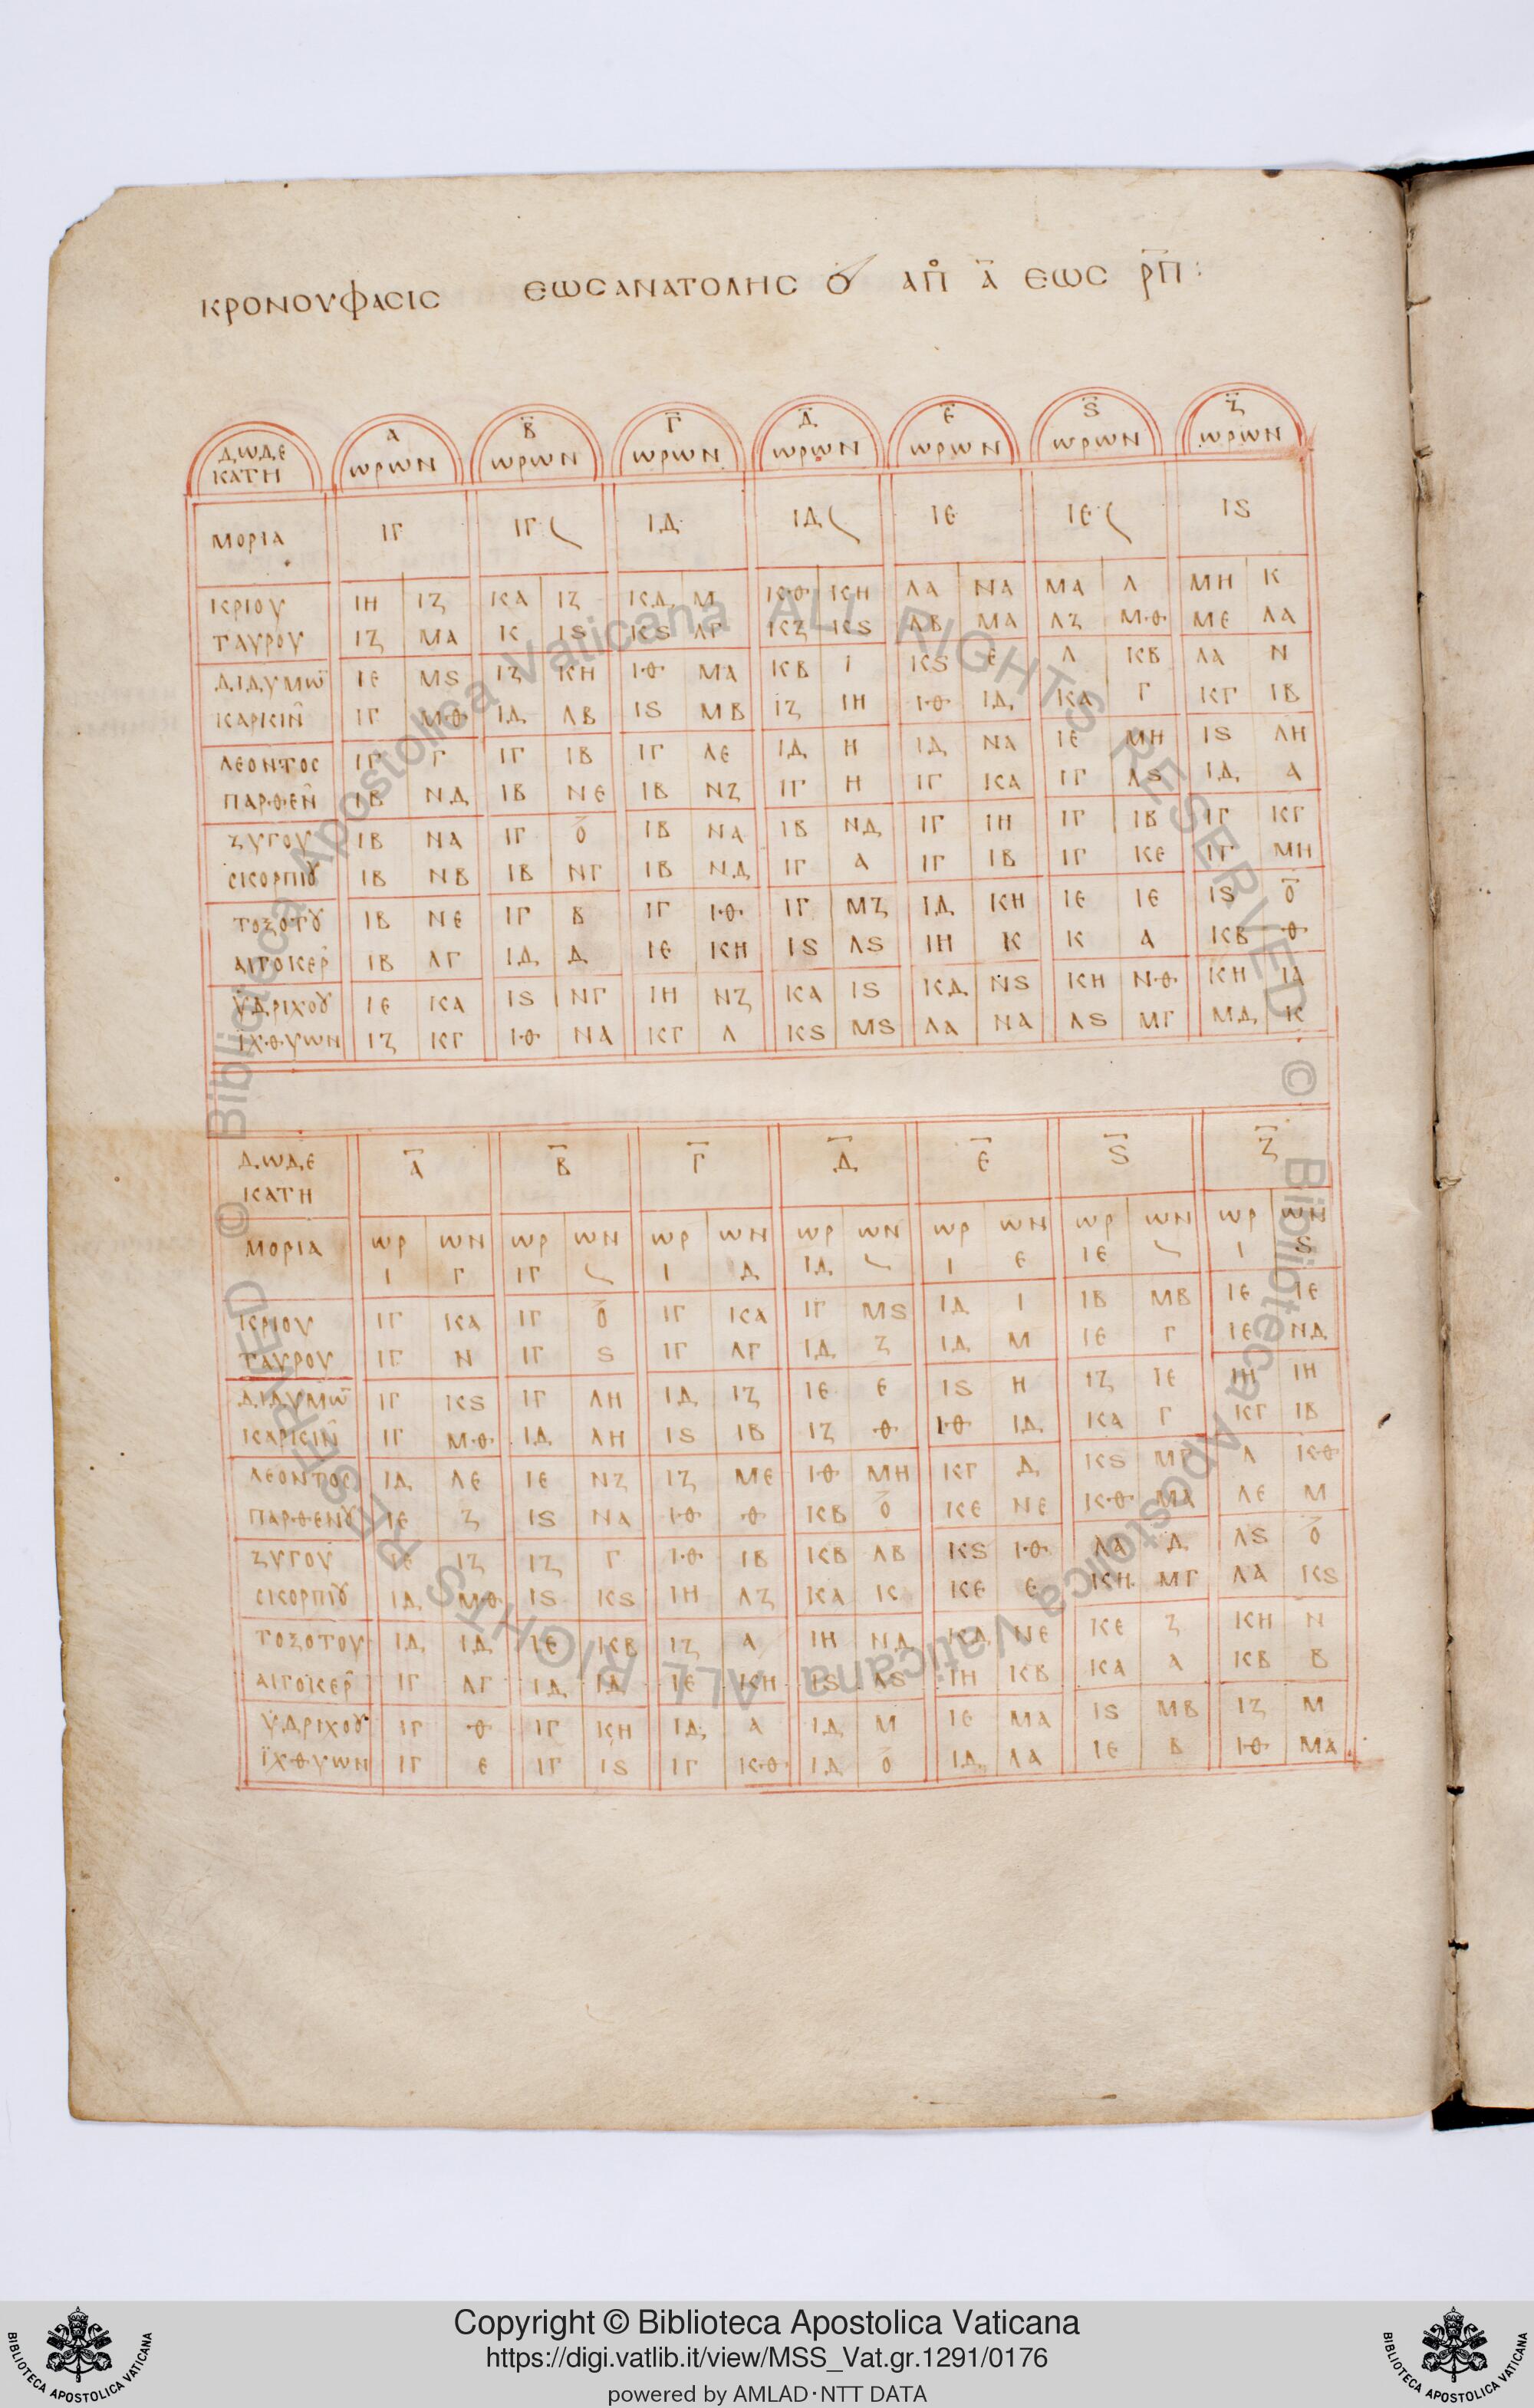 ΚΡΟΝΟΥ ΦΑϹΙϹ ΕΩϹ ΑΝΑΤΟΛΗϹ Ο Α͞Π Α͞ ΕΩϹ Ρ͞Π :
ΔΩΔΕ Α Β Γ Δ Ε Ϛ Ζ
ΚΑΤΗ ΩΡΩΝ ΩΡΩΝ ΩΡΩΝ ΩΡΩΝ ΩΡΩΝ ΩΡΩΝ ΩΡΩΝ
ΜΟΡΙΑ ΙΓ ΙΓ 𐅵 ΙΔ ΙΔ 𐅵 ΙΕ ΙΕ 𐅵 ΙϚ
ΚΡΙΟΥ ΙΗ ΙΖ ΚΑ ΙΖ ΚΔ Μ ΚΘ ΚΗ ΛΑ ΝΑ ΜΑ Λ ΜΗ Κ
ΤΑΥΡΟΥ ΙΖ ΜΑ Κ ΙϚ ΚϚ ΛΓ ΚΖ ΚϚ ΛΒ ΜΑ ΛΖ ΜΘ ΜΕ ΛΑ
ΔΙΔΥΜΩ ΙΕ ΜϚ ΙΖ ΚΗ ΙΘ ΜΑ ΚΒ Ι ΚϚ Ε Λ ΚΒ ΛΑ Ν
ΚΑΡΚΙΝ ΙΓ ΜΘ ΙΔ ΛΒ ΙϚ ΜΒ ΙΖ ΙΗ ΙΘ ΙΔ ΚΑ Γ ΚΓ ΙΒ
ΛΕΟΝΤΟϹ ΙΓ Γ ΙΓ ΙΒ ΙΓ ΛΕ ΙΔ Η ΙΔ ΝΑ ΙΕ ΜΗ ΙϚ ΛΗ
ΠΑΡΘΕΝ ΙΒ ΝΔ ΙΒ ΝΕ ΙΒ ΝΖ ΙΓ Η ΙΓ ΚΑ ΙΓ ΛϚ ΙΔ Α
ΖΥΓΟΥ ΙΒ ΝΑ ΙΓ Ο ΙΒ ΝΑ ΙΒ ΝΔ ΙΓ ΙΗ ΙΓ ΙΒ ΙΓ ΚΓ
ϹΚΟΡΠΙΟΥ ΙΒ ΝΒ ΙΒ ΝΓ ΙΒ ΝΔ ΙΓ Α ΙΓ ΙΒ ΙΓ ΚΕ ΙΓ ΜΗ
ΤΟΞΟΤΟΥ ΙΒ ΝΕ ΙΓ Β ΙΓ ΙΘ ΙΓ ΜΖ ΙΔ ΚΗ ΙΕ ΙΕ ΙϚ Ο
ΑΙΓΟΚΕΡ ΙΒ ΛΓ ΙΔ Δ ΙΕ ΚΗ ΙϚ ΛϚ ΙΗ Κ Κ Α ΚΒ Θ
ΥΔΡΙΧΟΥ ΙΕ ΚΑ ΙϚ ΝΓ ΙΗ ΝΖ ΚΑ ΙϚ ΚΔ ΝϚ ΚΗ ΝΘ ΚΗ ΙΑ
ΙΧΘΥΩΝ ΙΖ ΚΓ ΙΘ ΝΑ ΚΓ Λ ΚϚ ΜϚ ΛΑ ΝΑ ΛϚ ΜΓ ΜΔ Κ
ΔΩΔΕ Α Β Γ Δ Ε Ϛ Ζ
ΚΑΤΗ
ΜΟΡΙΑ ΩΡ ΩΝ ΩΡ ΩΝ ΩΡ ΩΝ ΩΡ ΩΝ ΩΡ ΩΝ ΩΡ ΩΝ ΩΡ ΩΝ
Ι Γ ΙΓ 𐅵 Ι Δ ΙΔ 𐅵 Ι Ε ΙΕ 𐅵 Ι Ϛ
ΚΡΙΟΥ ΙΓ ΚΑ ΙΓ Ο ΙΓ ΚΑ ΙΓ ΜϚ ΙΔ Ι ΙΒ ΜΒ ΙΕ ΙΕ
ΤΑΥΡΟΥ ΙΓ Ν ΙΓ Ϛ ΙΓ ΛΓ ΙΔ Ζ ΙΔ Μ ΙΕ Γ ΙΕ ΝΔ
ΔΙΔΥΜΩ ΙΓ ΚϚ ΙΓ ΛΗ ΙΔ ΙΖ ΙΕ Ε ΙϚ Η ΙΖ ΙΕ ΙΗ ΙΗ
ΚΑΡΚΙΝ ΙΓ ΜΘ ΙΔ ΛΗ ΙϚ ΙΒ ΙΖ Θ ΙΘ ΙΔ ΚΑ Γ ΚΓ ΙΒ
ΛΕΟΝΤΟϹ ΙΔ ΛΕ ΙΕ ΝΖ ΙΖ ΜΕ ΙΘ ΜΗ ΚΓ Δ ΚϚ ΜΓ Λ ΚΘ
ΠΑΡΘΕΝΟΥ ΙΕ Ζ ΙϚ ΝΑ ΙΘ Θ ΚΒ Ο ΚΕ ΝΕ ΚΘ ΜΑ ΛΕ Μ
ΖΥΓΟΥ ΙΕ ΙΖ ΙΖ Γ ΙΘ ΙΒ ΚΒ ΛΒ ΚϚ ΙΘ ΛΑ Δ ΛϚ Ο
ϹΚΟΡΠΙΟΥ ΙΔ ΜΘ ΙϚ ΚϚ ΙΗ ΛΖ ΚΑ Κ ΚΕ Ε ΚΗ ΜΓ ΛΑ ΚϚ
ΤΟΞΟΤΟΥ ΙΔ ΙΔ ΙΕ ΚΒ ΙΖ Α ΙΗ ΝΔ ΚΔ ΝΕ ΚΕ Ζ ΚΗ Ν
ΑΙΓΟΚΕΡ ΙΓ ΛΓ ΙΔ ΙΔ ΙΕ ΚΗ ΙϚ ΛϚ ΙΗ ΚΒ ΚΑ Α ΚΒ Β
ΥΔΡΙΧΟΥ ΙΓ Θ ΙΓ ΚΗ ΙΔ Α ΙΔ Μ ΙΕ ΜΑ ΙϚ ΜΒ ΙΖ Μ
ΪΧΘΥΩΝ ΙΓ Ε ΙΓ ΙϚ ΙΓ ΚΘ ΙΔ Ο ΙΔ ΛΑ ΙΕ Β ΙΘ ΜΑ
© Biblioteca Apostolica Vaticana ALL RIGHTS RESERVED © Biblioteca Apostolica Vaticana ALL RIGHTS RESERVED
Copyright © Biblioteca Apostolica Vaticana
https://digi.vatlib.it/view/MSS_Vat.gr.1291/0176
powered by AMLAD·NTT DATA
BIBLIOTECA APOSTOLICA VATICANA
BIBLIOTECA APOSTOLICA VATICANA